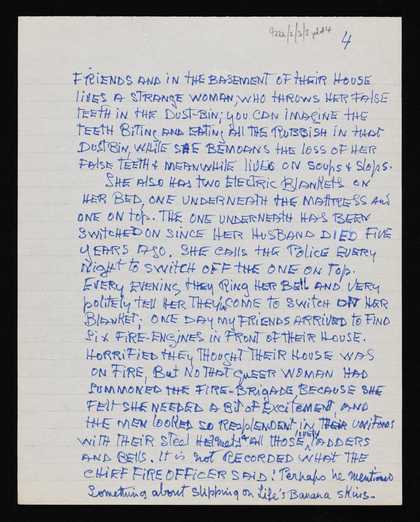 4
FRIENDS AND IN THE BASEMENT OF THEIR HOUSE
LIVES A STRANGE WOMAN, WHO THROWS HER FALSE
TEETH IN THE DUST-BIN; YOU CAN IMAGINE THE
TEETH BITING AND EATING ALL THE RUBBISH IN THAT
DUSTBIN, WHILE SHE BEMOANS THE LOSS OF HER
FALSE TEETH & MEANWHILE LIVES ON SOUPS & SLOPS.
SHE ALSO HAS TWO ELECTRIC BLANKETS ON
HER BED, ONE UNDERNEATH THE MATTRESS AND
ONE ON TOP. THE ONE UNDERNEATH HAS BEEN
SWITCHED ON SINCE HER HUSBAND DIED FIVE
YEARS AGO. SHE CALLS THE POLICE EVERY
NIGHT TO SWITCH OFF THE ONE ON TOP.
EVERY EVENING THEY RING HER BELL AND VERY
POLITELY TELL HER THEY'VE COME TO SWITCH OFF HER
BLANKET; ONE DAY MY FRIENDS ARRIVED TO FIND
SIX FIRE-ENGINES IN FRONT OF THEIR HOUSE.
HORRIFIED THEY THOUGHT THEIR HOUSE WAS
ON FIRE, BUT NO THAT QUEER WOMAN HAD
SUMMONED THE FIRE-BRIGADE, BECAUSE SHE
FELT SHE NEEDED A BIT OF EXCITEMENT AND
THE MEN LOOKED SO RESPLENDENT IN THEIR UNIFORMS
WITH THEIR STEEL HELMETS & ALL THOSE LADDERS
AND BELLS. IT IS NOT RECORDED WHAT THE
CHIEF FIRE OFFICER SAID! Perhaps he mentioned
something about slipping on Life's Banana skins.